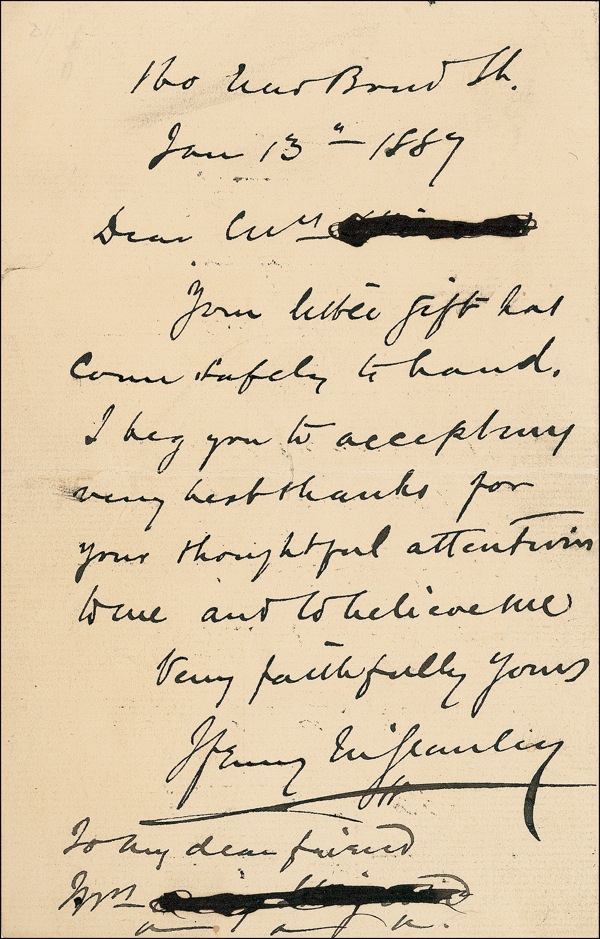 160 New Bond St.
Jan 13th 1887
Dear
Your little gift has
come safely to hand.
I beg you to accept my
very best thanks for
your thoughtful attention
to me and to believe me
Very faithfully yours
Henry M Stanley
To my dear friend